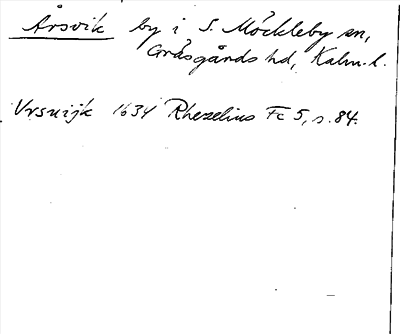 Årsvik by i S. Möckleby sn,
Gräsgårds hd, Kalm. l.
Vrsuijk 1634 Rhezelius Fc 5, s. 84.